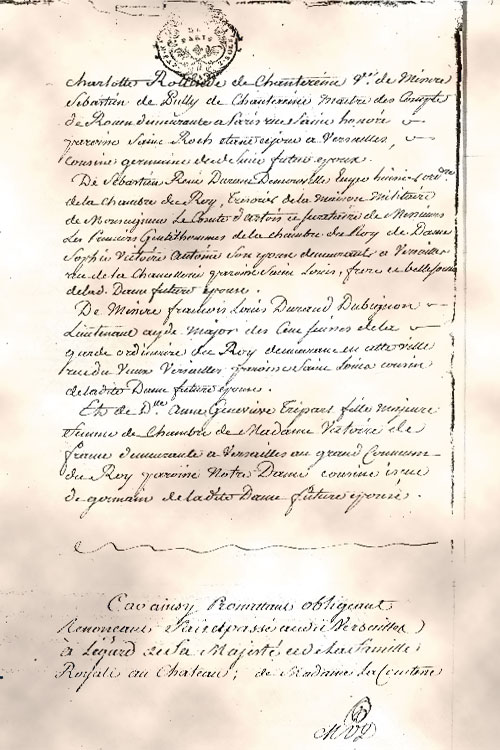 DE
PARIS
Charlotte de Chantereine V.e de Messire
Sébastien de Bully de Chantereine Maitre des Compte
de Rouen demeurante a Paris rue Saint honoré
paroisse Saint Roch etant ce jour a Versailles,
cousine germaine de la Dame future epouse.
De Sébastien René huissier ord.re
de la chambre du Roy, Tresorier de la maison Militaire
de Monseigneur Le Comte d'artois de Messieurs
Les Premiers Gentilhommes de la chambre du Roy de Dame
Sophie Victoire Antoinette Son epouse demeurants a Versailles
rue de la Chancellerie paroisse Saint Louis, frere et belle soeur
de lad. Dame future epouse.
De Messire francois Louis Durand Dubignon
Lieutenant ayde major des Cent Suisses de la
garde ordinaire du Roy demeurant en cette ville
rue du Vieux Versailles paroisse Saint Louis cousin
de ladite Dame future epouse.
Et de D.lle Anne Genevieve Tripart fille majeure
femme de Chambre de Madame Victoire de
france demeurante a Versailles au grand Commun
du Roy paroisse Notre Dame cousine issue
de germain de ladite Dame future epouse.
Car ainsy Promettant obligeant
Renoncant fait et passé audit Versailles
à Légard de Sa Majesté et de la famille
Royale au Chateau; de Madame La Comtesse